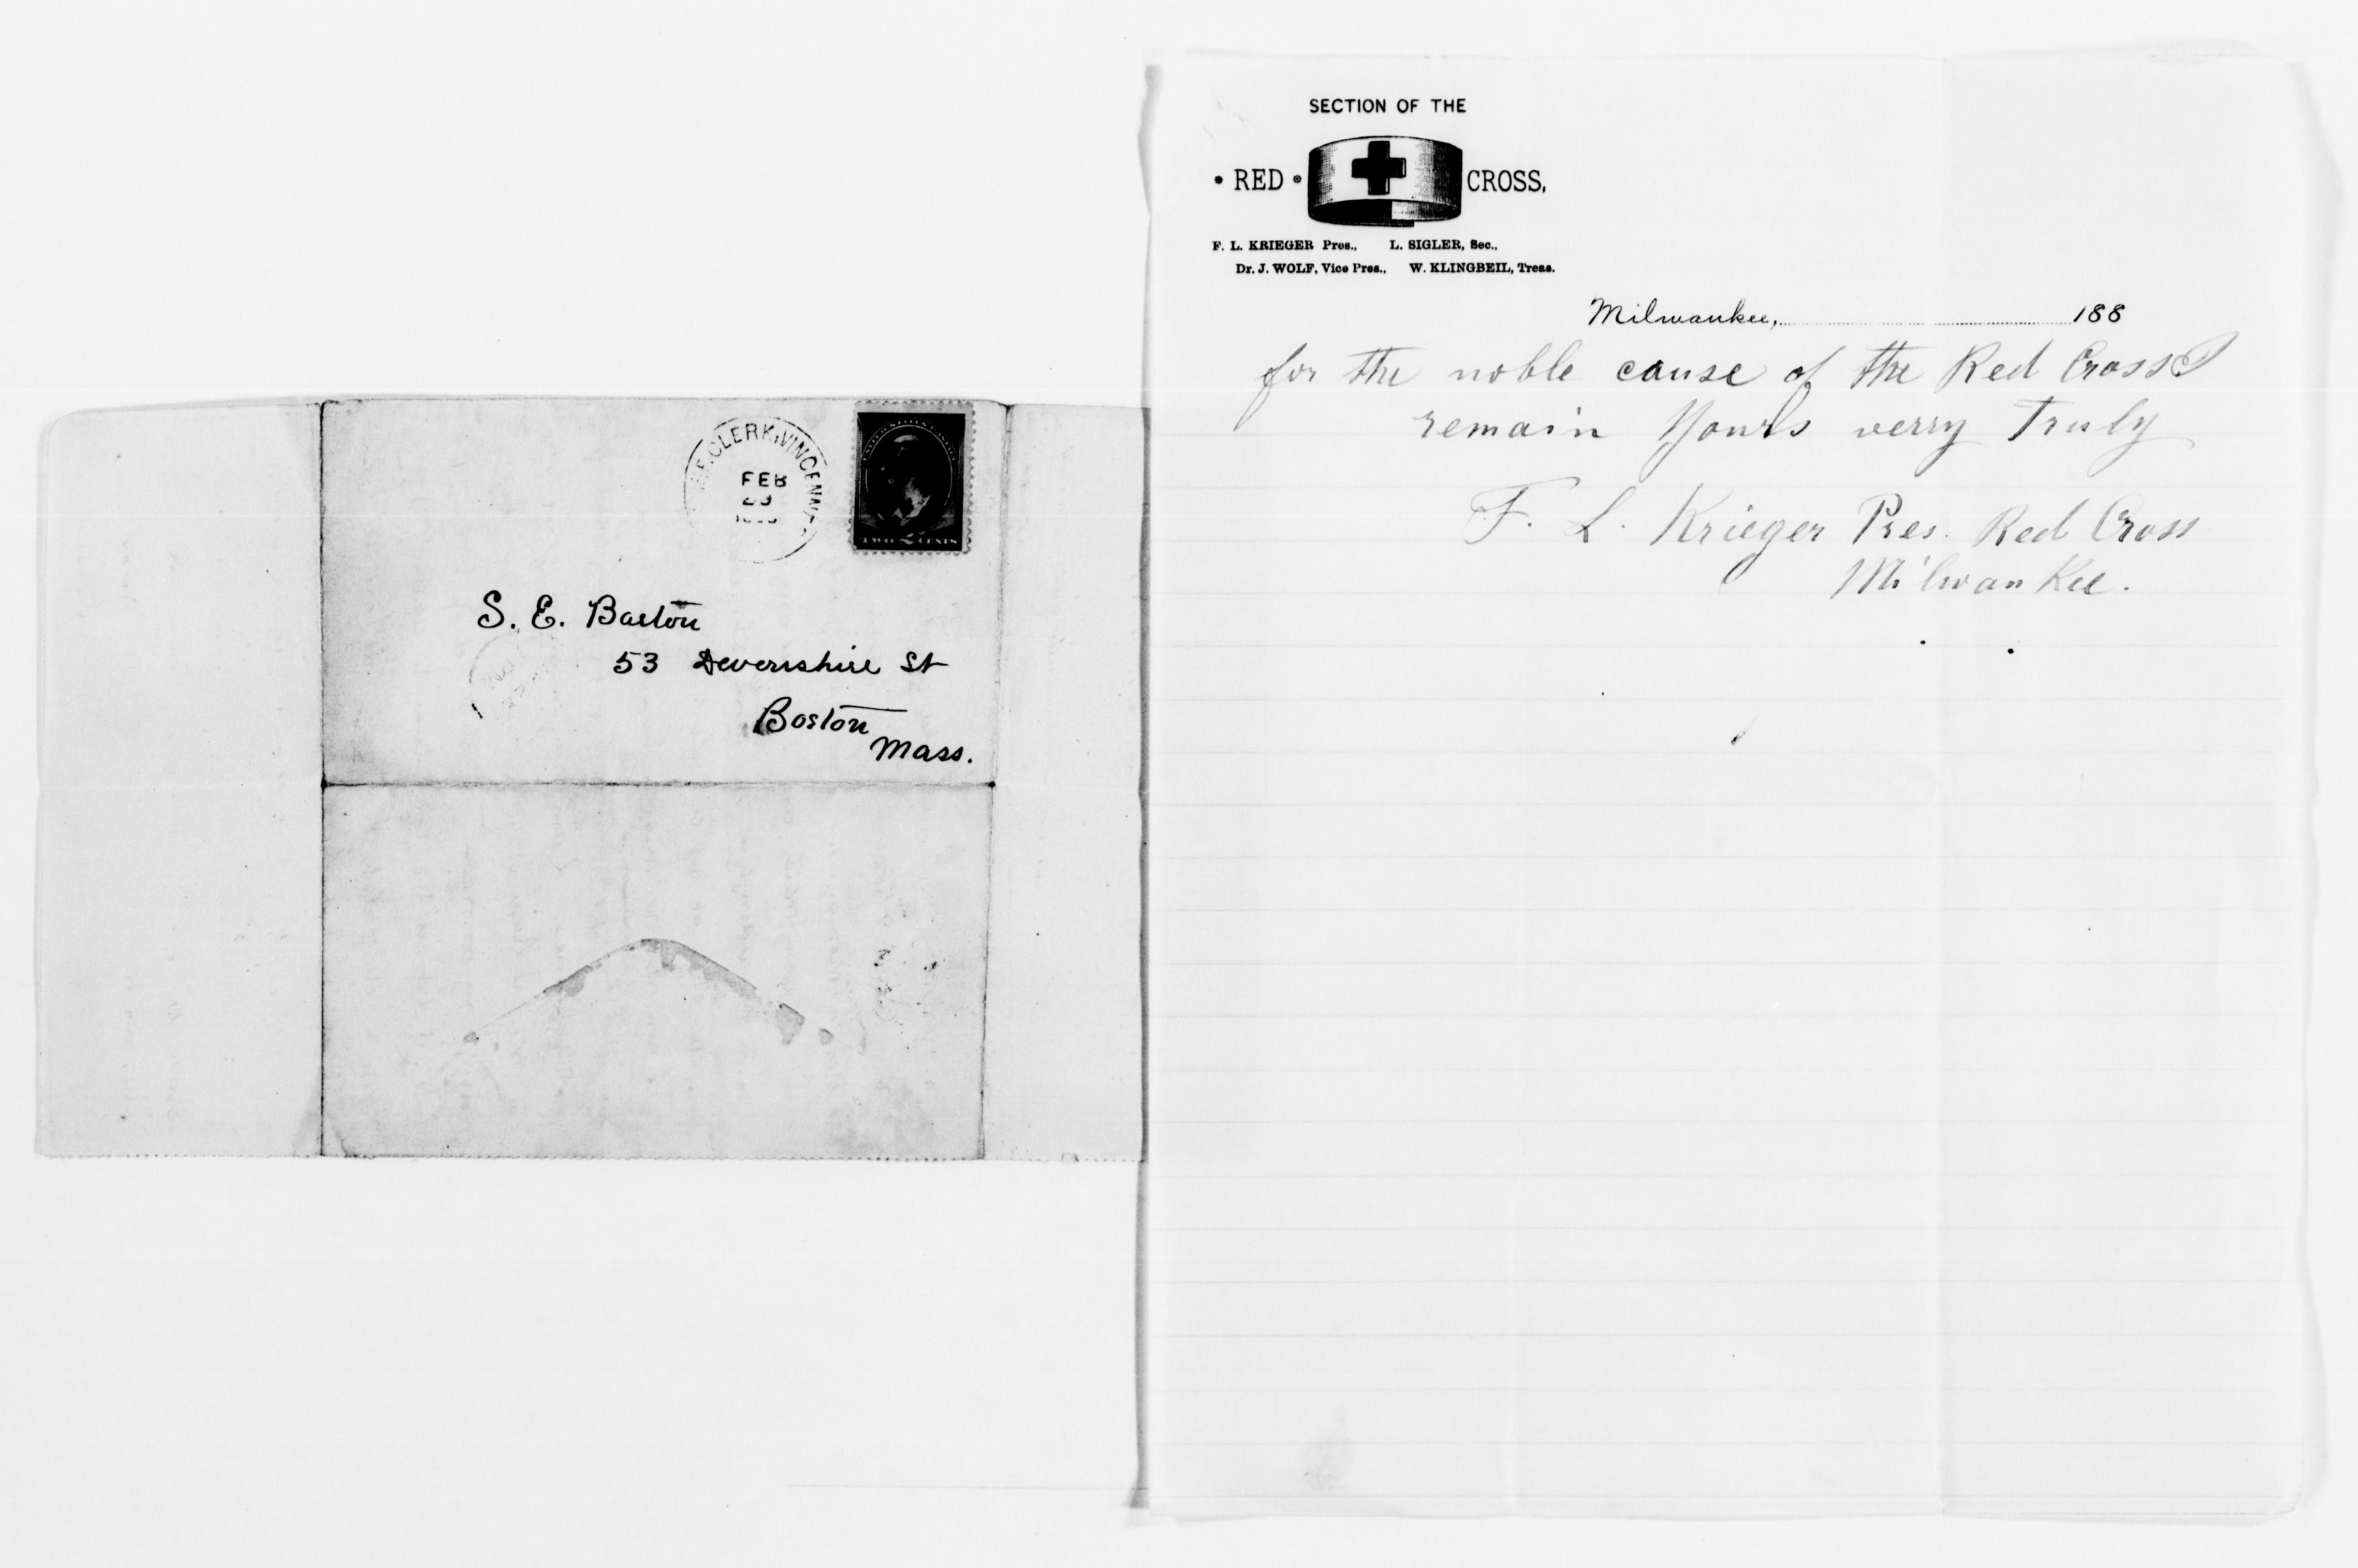 FEB
TWO 2 CENTS
S. E. Barton
53 Devonshire St
Boston
Mass.
SECTION OF THE
RED CROSS,
F. L. KRIEGER Pres., L. SIGLER, Sec.,
Dr. J. WOLF, Vice Pres., W. KLINGBEIL, Treas.
Milwaukee, 188
for the noble cause of the Red Cross I
remain Yours verry Truly
F. L. Krieger Pres. Red Cross
Milwaukee.